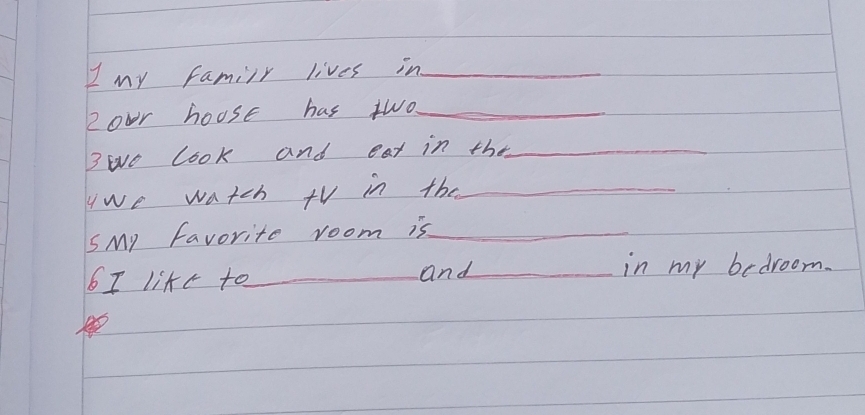 1 my family lives in
2 our house has two
3 we cook and eat in the
4 we watch tv in the
5 My favorite room is
6 I like to and in my bedroom.